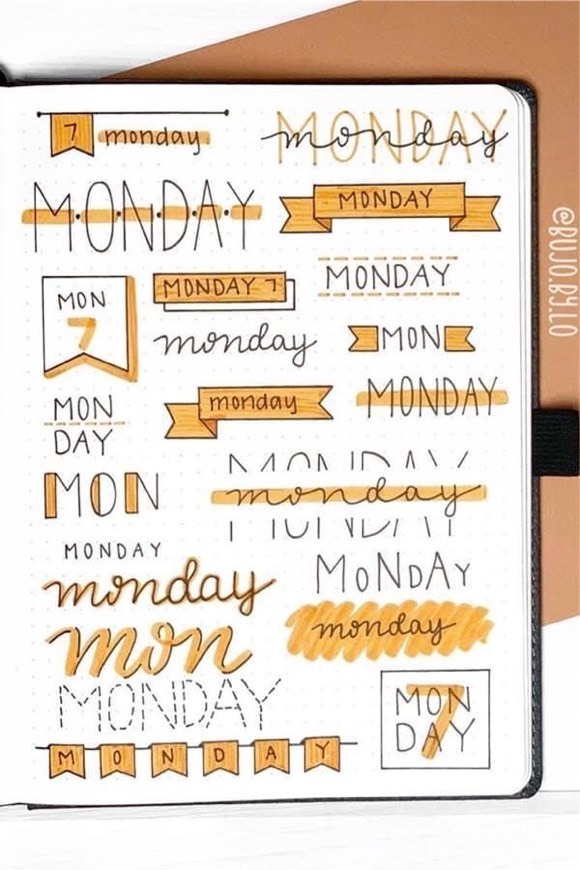 7 monday
MONDAY
monday
MONDAY
MONDAY
MON
7
MONDAY 7
MONDAY
monday
MON
MON
DAY
monday
MONDAY
MON
MONDAY
monday
MONDAY
MoNDAY
monday
monday
mon
MONDAY
MON
DAY
7
M O N D A Y
@BUJO.BY.LO